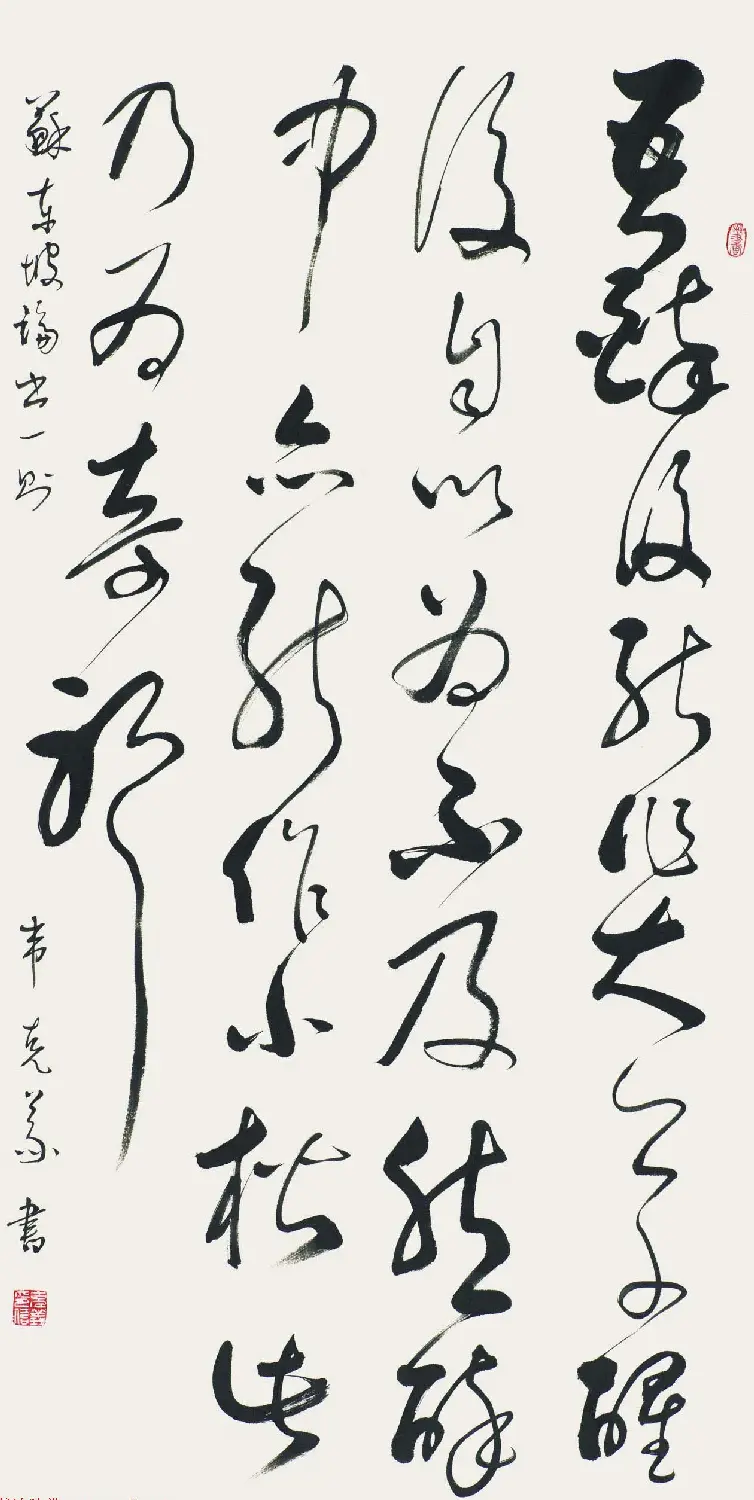 吾醉後能作大草醒
後自以為不及然醉
中亦能作小楷此
乃為奇
蘇東坡論書一則
韦克義書